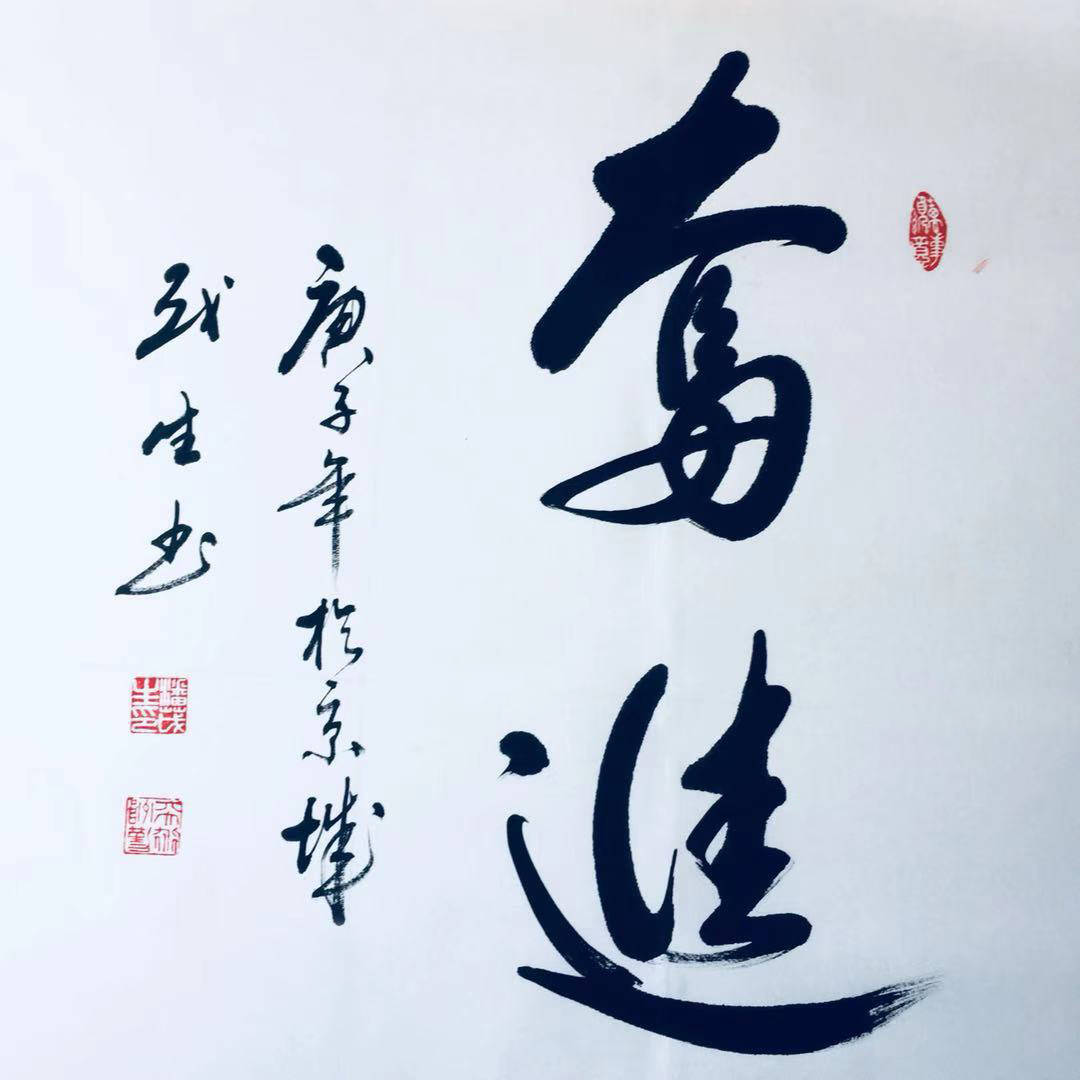 奮進
庚子年於京城
生书